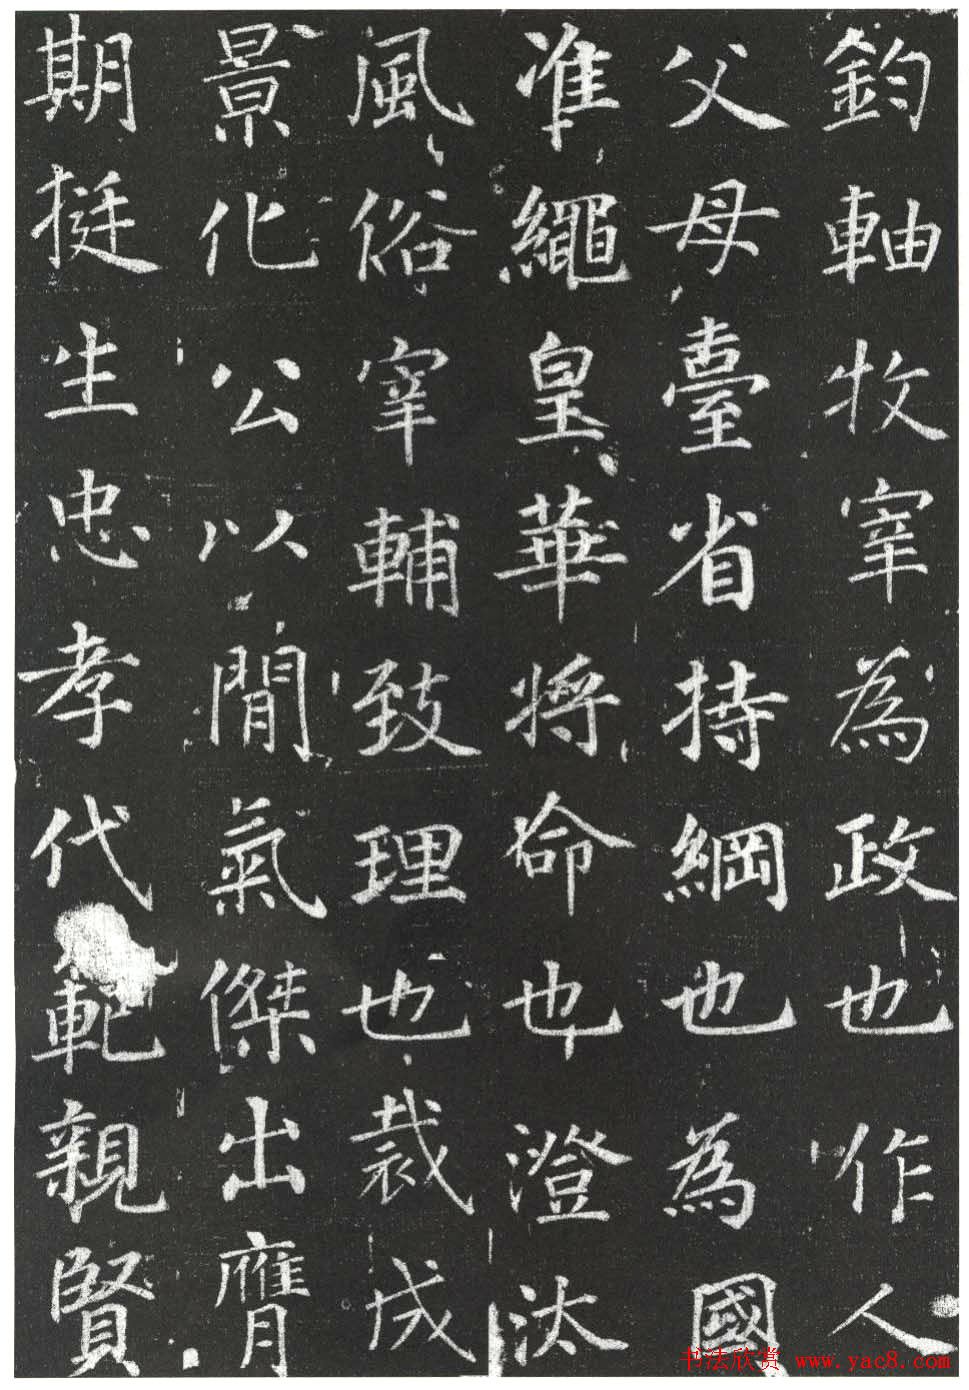 鈞軸牧宰為政也作人
父母臺省持綱也為國
准繩皇華將命也澄汰
風俗宰輔致理也裁成
景化公以間氣傑出膺
期挺生忠孝代範親賢
书法欣赏 www.yac8.com